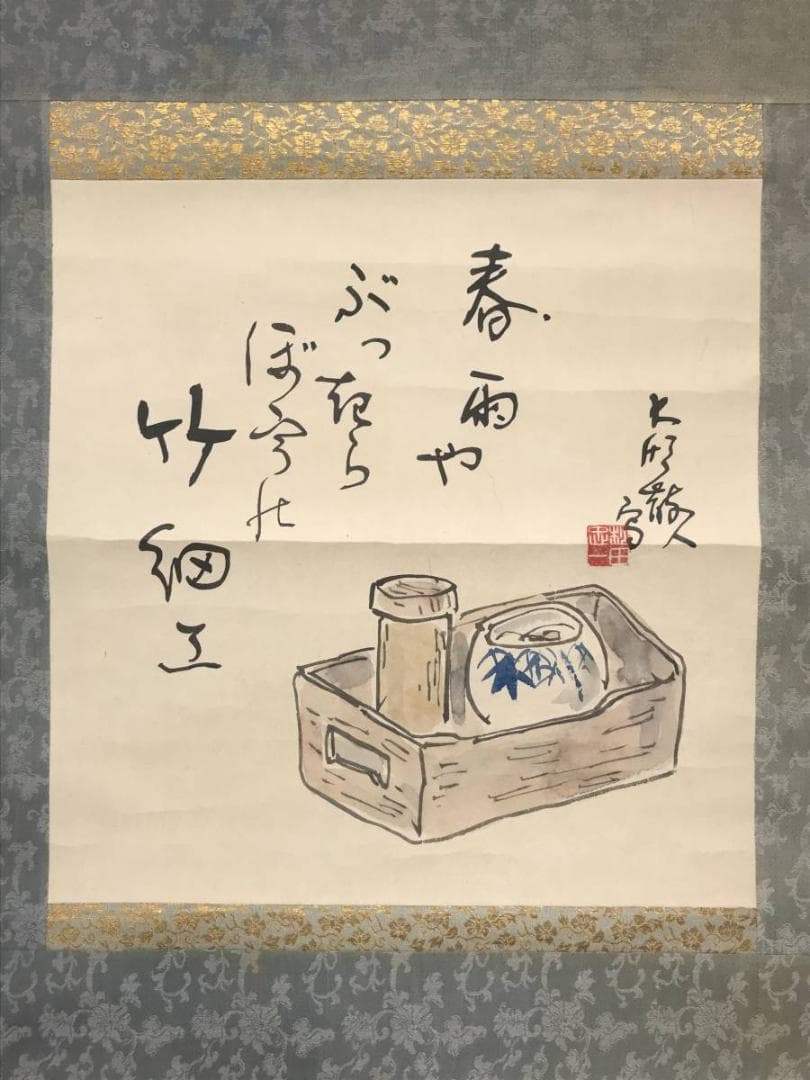 春雨や
ぶつきら
ぼうの
竹細工
散人
写